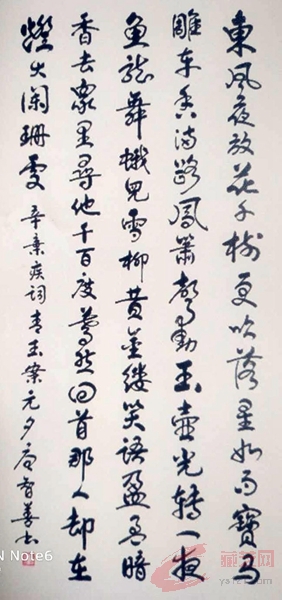 東風夜放花千樹更吹落星如雨寶馬
雕車香满路鳳簫聲動玉壺光轉一夜
魚龍舞蛾兒雪柳黄金缕笑語盈盈暗
香去衆里尋他千百度驀然回首那人却在
燈火阑珊處 辛棄疾詞青玉案元夕 智善书
N Note6